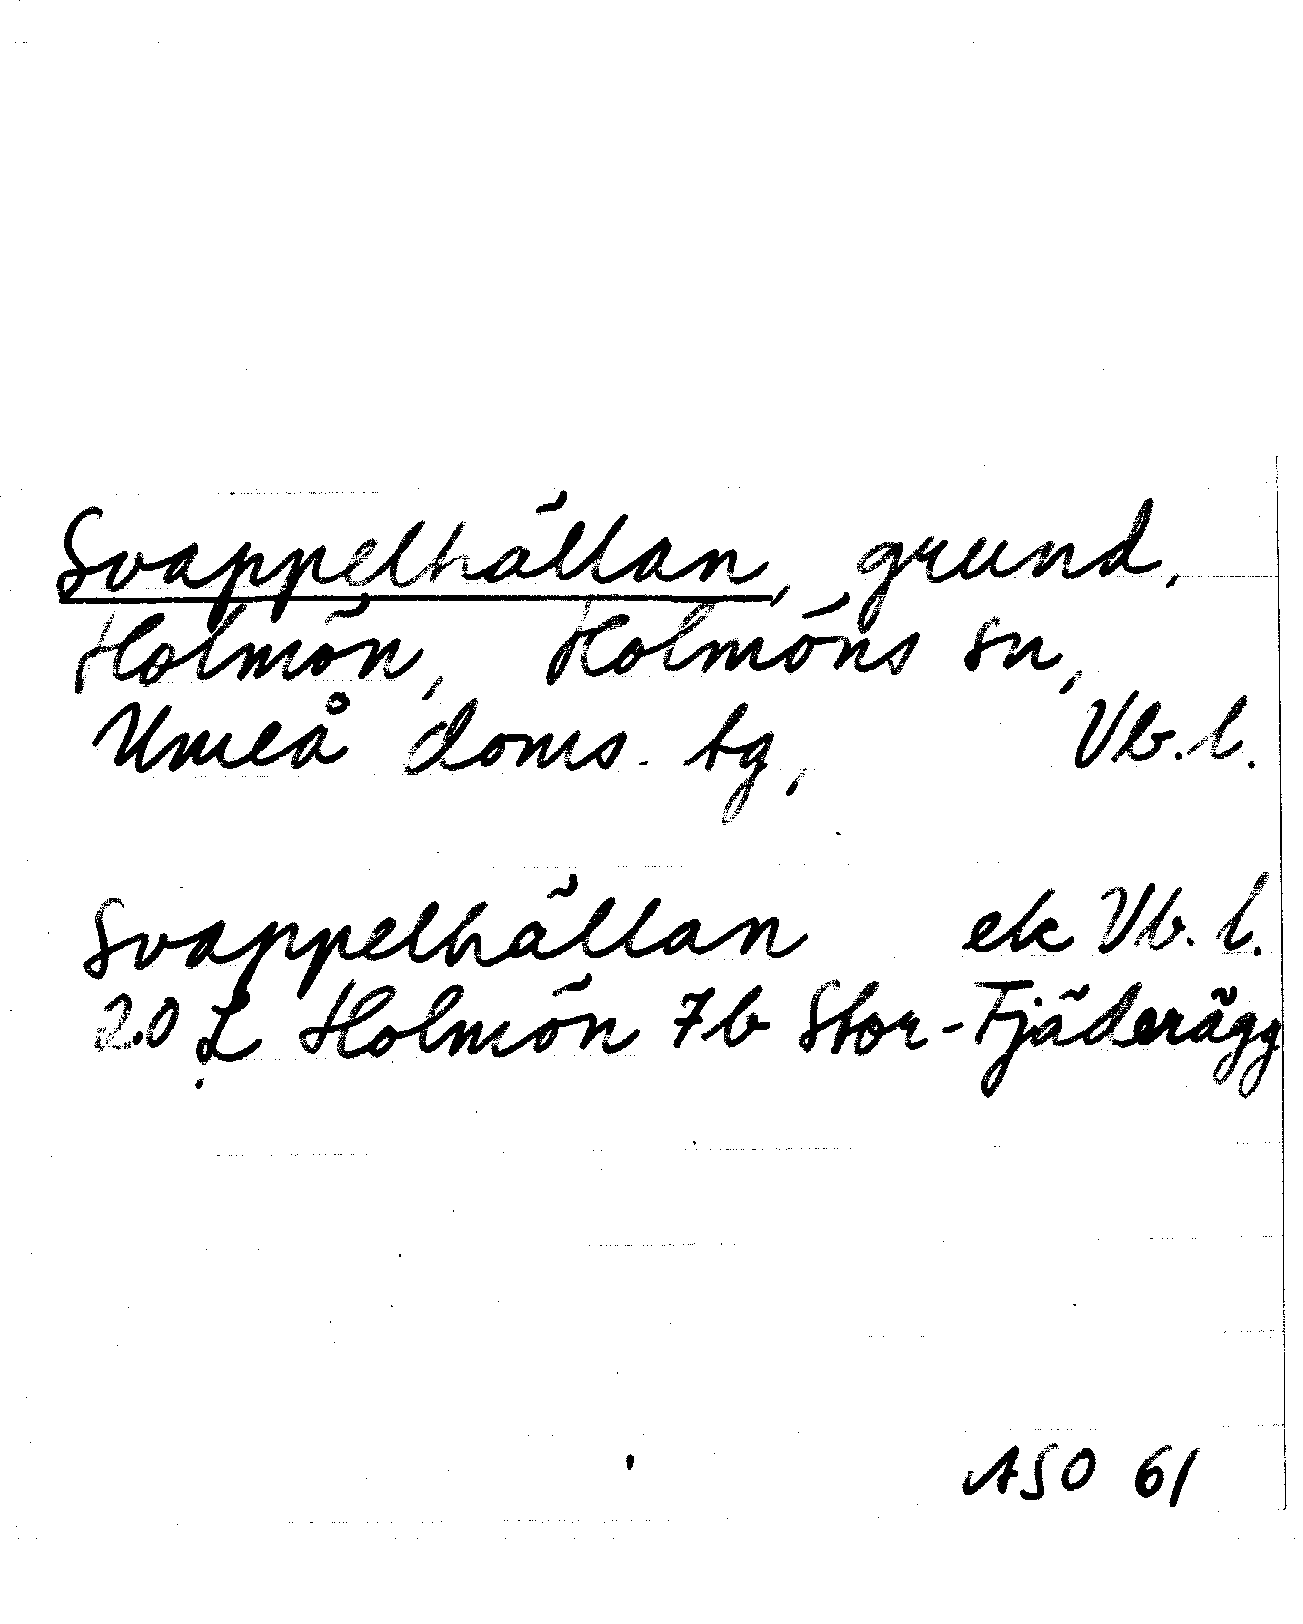 Svappelhällan, grund,
Holmön, Holmöns sn,
Umeå doms. tg, Vb.l.
Svappelhällan ek Vb.l.
20 L Holmön 7b Stor-Fjäderägg
ASO 61